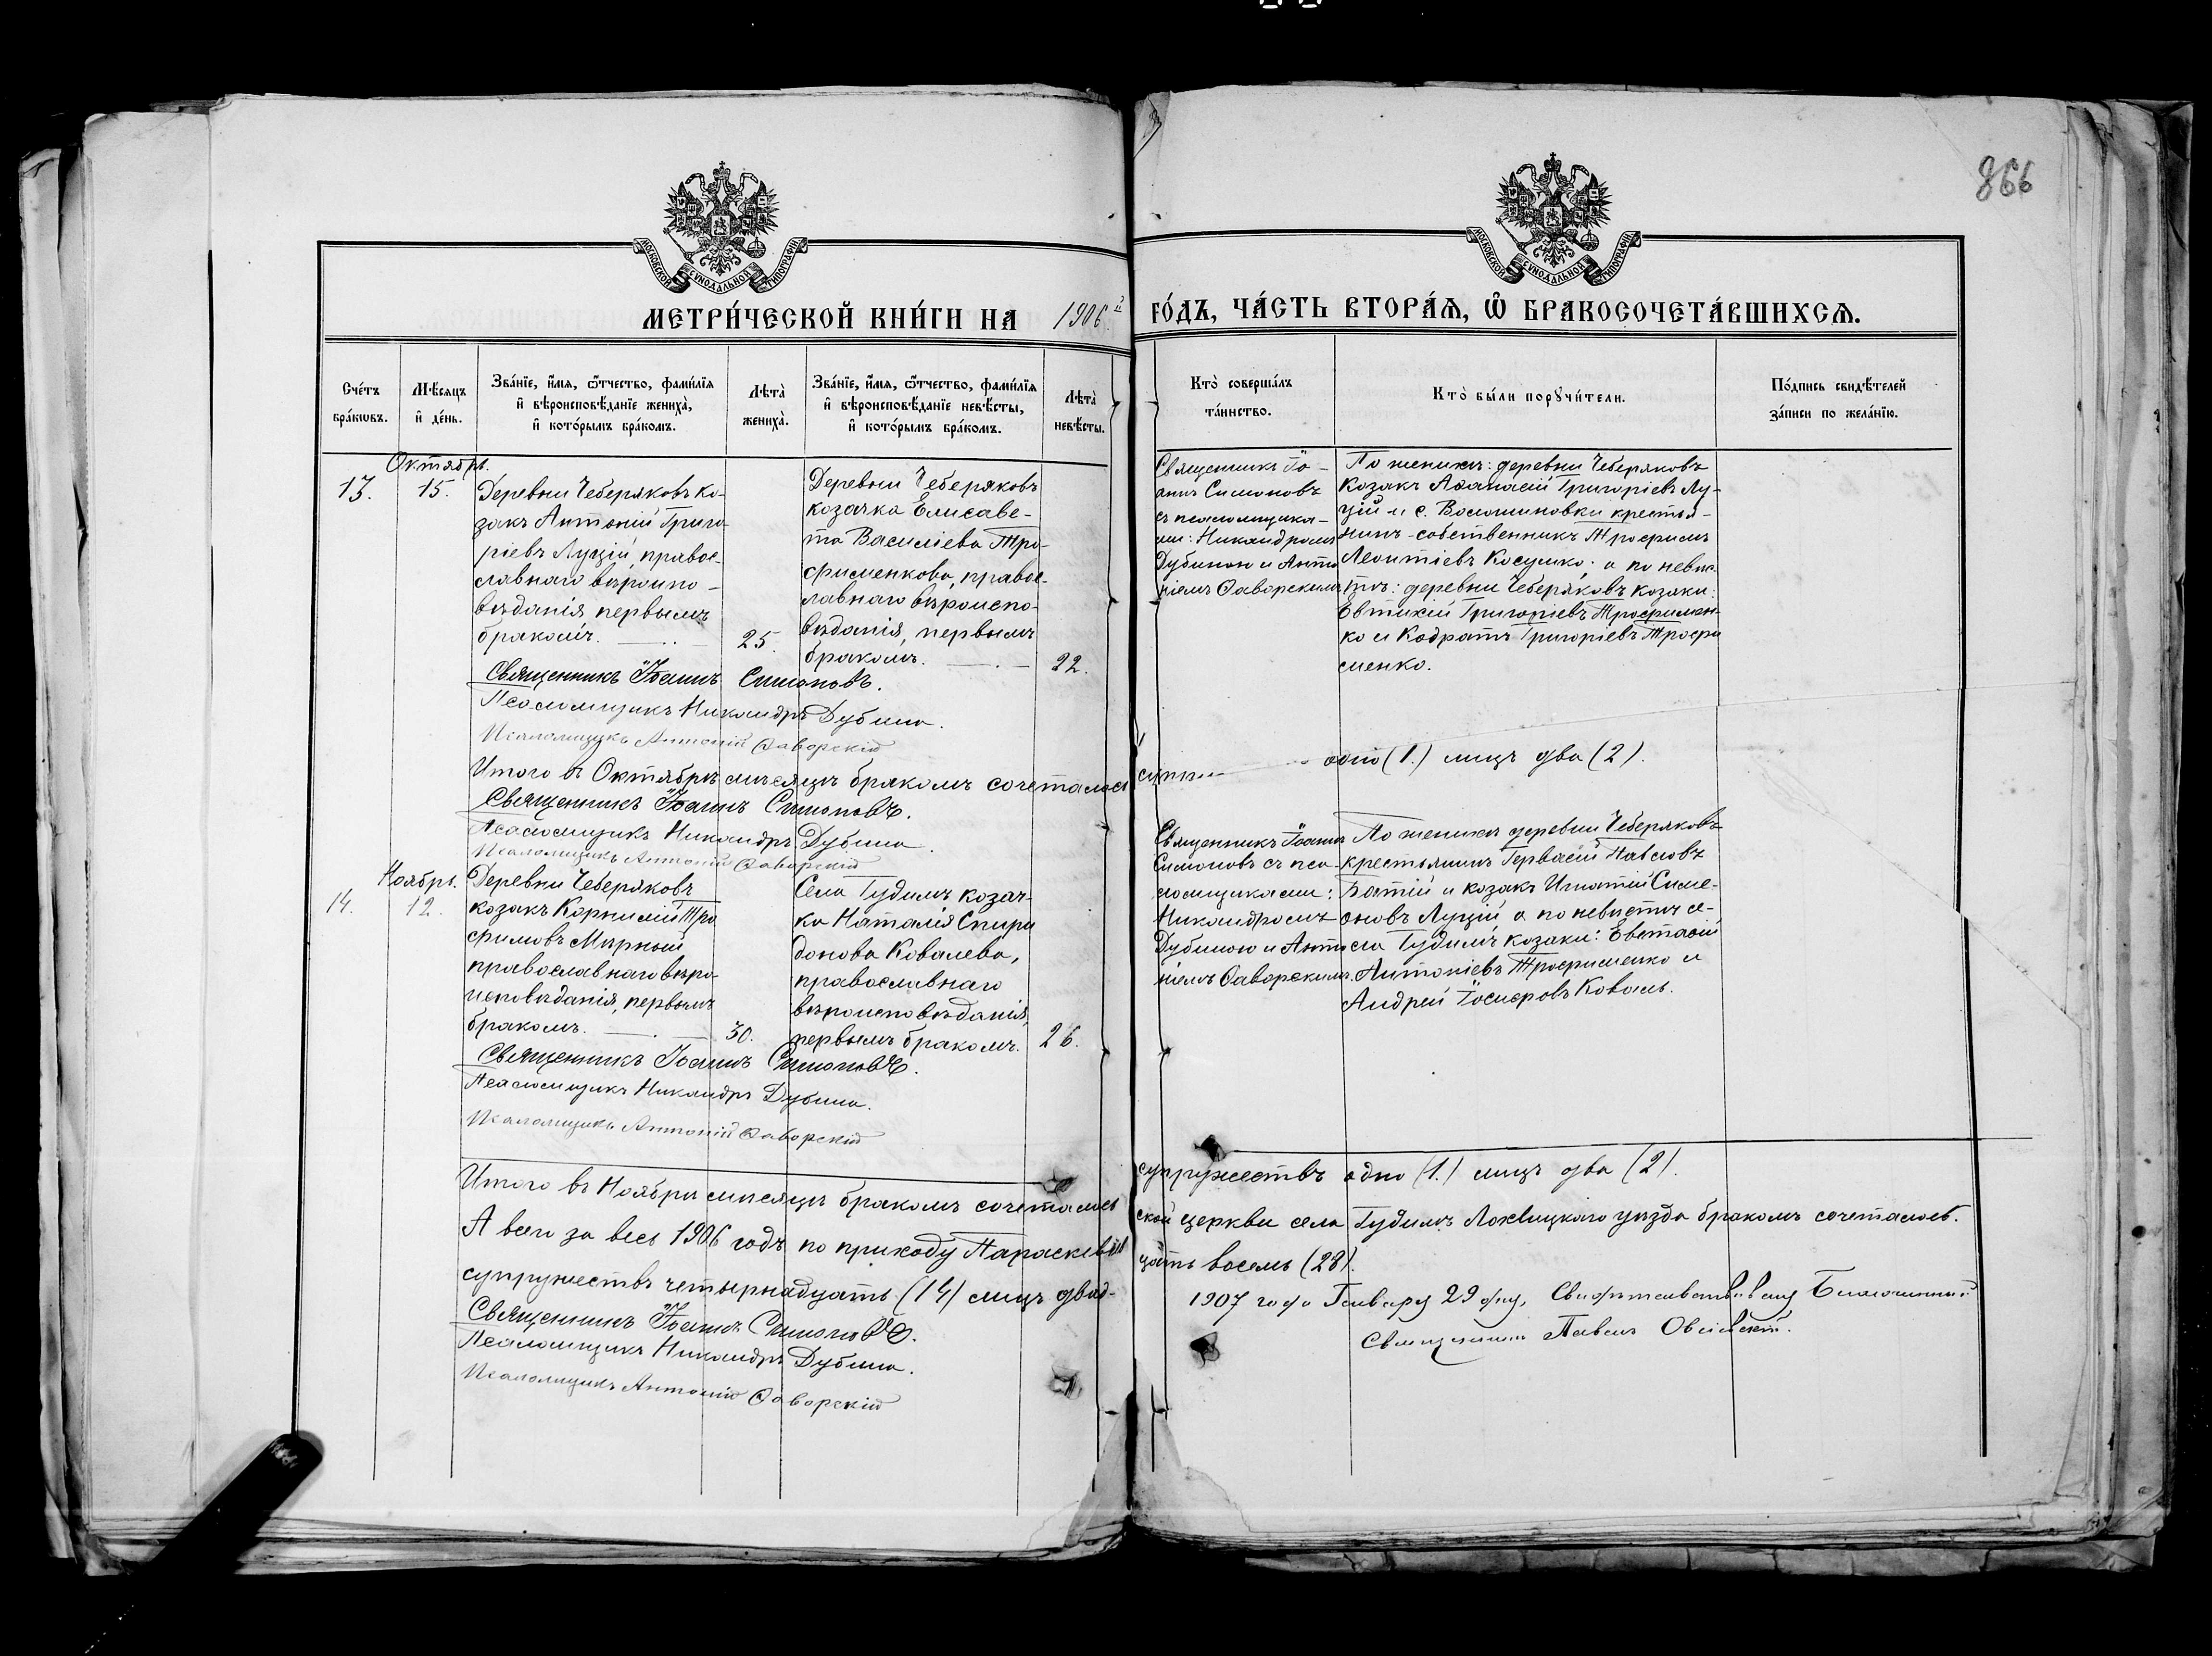 866
МОСКОВСКОЙ СѴНОДАЛЬНОЙ ТИПОГРАФІИ
МОСКОВСКОЙ СѴНОДАЛЬНОЙ ТИПОГРАФІИ
МЕТРИ́ЧЕСКОЙ КНИ́ГИ НА 1906й ГО́ДЪ, ЧА́СТЬ ВТОРА́Ѧ, Ѽ БРАКОСОЧЕТА́ВШИХСѦ.
Сче́тъ
бра́кѡвъ.
Мѣ́сѧцъ
и҆ де́нь.
Зва́нїе, и҆́мѧ, ѻ҆́тчество, фамѝлїѧ
и҆ вѣроисповѣ́данїе жениха̀,
и҆ кото́рымъ бра́комъ.
Лѣта̀
жениха̀.
Зва́нїе, и҆́мѧ, ѻ҆́тчество, фамѝлїѧ
и҆ вѣроисповѣ́данїе невѣ́сты,
и҆ кото́рымъ бра́комъ.
Лѣта̀
невѣ́сты.
Кто̀ соверша́лъ
та́инство.
Кто̀ бы́ли порꙋчи́тели.
По́дпись свидѣ́телей
за́писи по жела́нїю.
Октябрь.
13.
15.
Деревни Чеберяковъ ко-
закъ Антоній Григо-
ріевъ Луцій, правос-
лавнаго вѣроиспо-
вѣданія первымъ
бракомъ.
25.
Деревни Чеберяковъ
козачка Елисаве-
та Василіева Тро-
фименкова, правос-
лавнаго вѣроиспо-
вѣданія, первымъ
бракомъ.
22.
Священникъ Іо-
аннъ Симоновъ
съ псаломщика-
ми: Никандромъ
Дубиною и Анто
ніемъ Ѳаворскимъ
По женихѣ: деревни Чеберяковъ
козакъ Аѳанасій Григоріевъ Лу-
цій и с. Волошиновки крестья-
нинъ-собственникъ Трофимъ
Леонтіевъ Косушко; а по невѣс-
тѣ: деревни Чеберяковъ козаки:
Евтихій Григоріевъ Трофимен-
ко и Кодратъ Григоріевъ Трофи
менко.
Священникъ Іоаннъ Симоновъ.
Псаломщикъ Никандръ Дубина.
Псаломщикъ Антоній Ѳаворскій
Итого въ Октябрѣ мѣсяцѣ бракомъ сочеталось одно (1.) лицъ два (2).
Священникъ Іоаннъ Симоновъ.
Псаломщикъ Никандръ Дубина.
Псаломщикъ Антоній Ѳаворскій
Ноябрь.
14.
12.
Деревни Чеберяковъ
козакъ Корнилій Тро
фимовъ Мирный
православнаго вѣро-
исповѣданія, первымъ
бракомъ.
30.
Села Гудимъ козач-
ка Наталія Спири
донова Ковалева,
православнаго
вѣроисповѣданія,
первымъ бракомъ.
26.
Священникъ Іоаннъ
Симоновъ съ пса-
ломщиками:
Никандромъ
Дубиною и Анто
ніемъ Ѳаворскимъ.
По женихѣ деревни Чеберяковъ
крестьянинъ Гервасій Павловъ
и козакъ Игнатій Симе-
оновъ Луцій а по невѣстѣ се-
ла Гудимъ козаки:
Антоніевъ Трофименко и
Андрей Іосифовъ Коваль.
Священникъ Іоаннъ Симоновъ.
Псаломщикъ Никандръ Дубина.
Псаломщикъ Антоній Ѳаворскій
Итого въ Ноябрѣ мѣсяцѣ бракомъ сочеталось супружествъ одно (1.) лицъ два (2).
А всего за весь 1906 годъ по приходу Параскевійской церкви села Гудимъ Лохвицкаго уѣзда бракомъ сочеталось.
супружествъ четырнадцать (14) лицъ двадцать восемь (28).
Священникъ Іоаннъ Симоновъ.
Псаломщикъ Никандръ Дубина.
Псаломщикъ Антоній Ѳаворскій
1907 года Января 29 дня, Свидѣтельствовалъ Благочинный
Священникъ Павелъ